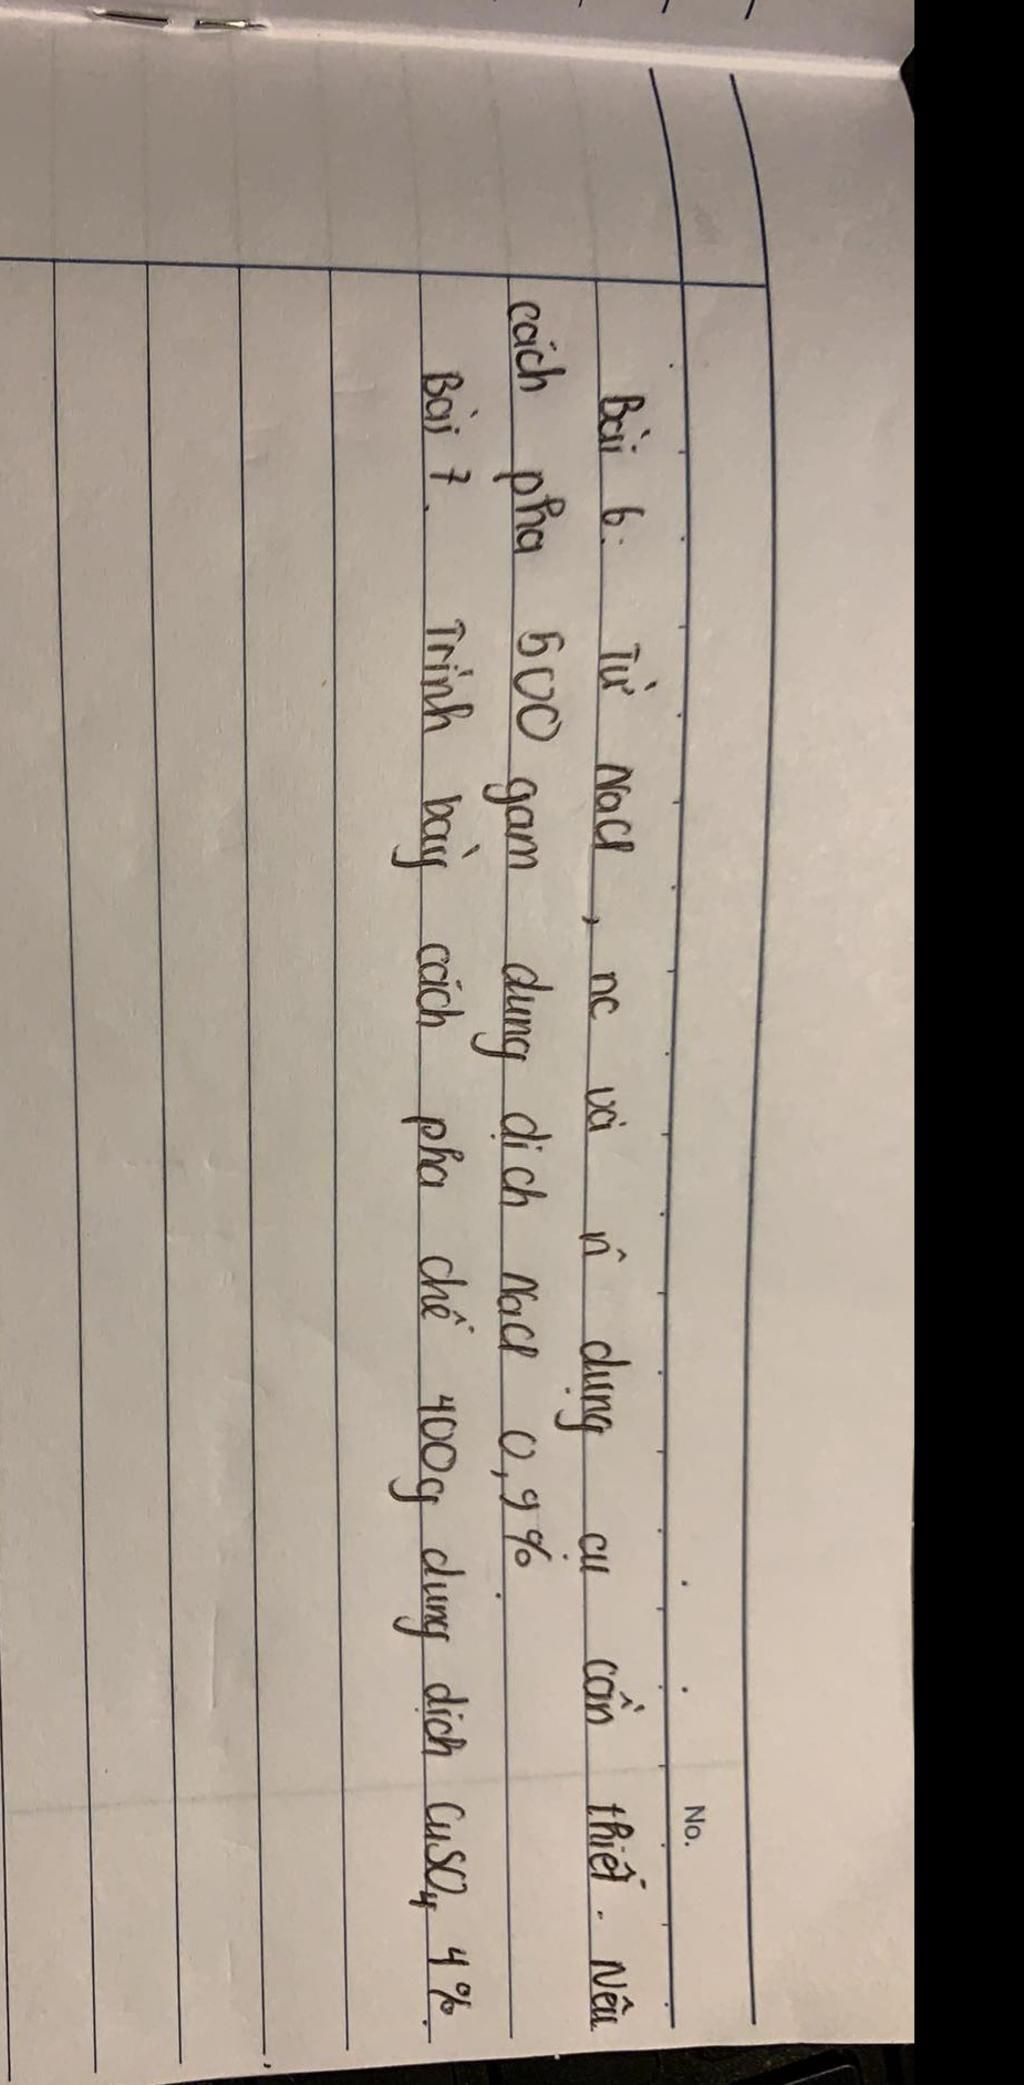 No.
Bài 6: Từ NaCl, nc và n~ dụng cụ cần thiết. Nêu
cách pha 500 gam dung dịch NaCl 0,9%.
Bài 7. Trình bày cách pha chế 400g dung dịch CuSO4 4%.